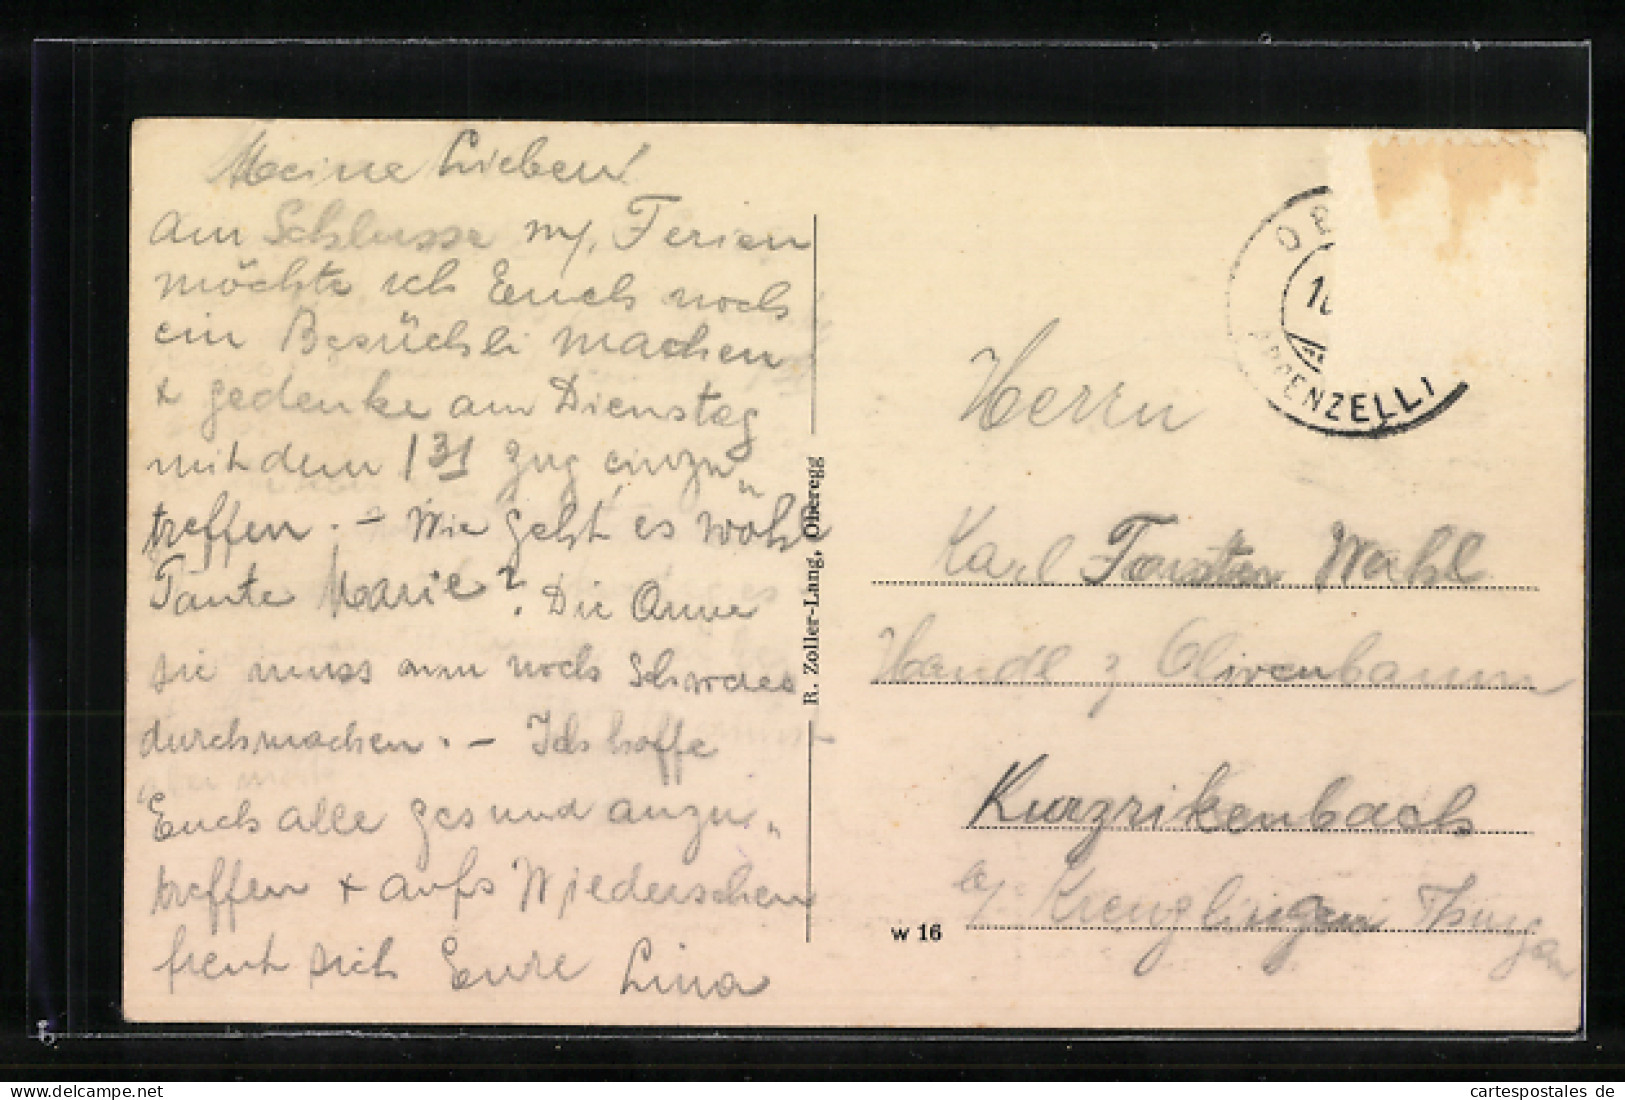 Meine Lieben!
Am Schlusse m/. Ferien
möchte ich Euch noch
ein Besüchli machen
+ gedenke am Dienstag
mit dem 131 Zug einzu„
treffen. – Wie geht es wohl
Tante Marie? Die Arme
sie muss nun noch
durchmachen. – Ich hoffe
Euch alle gesund anzu„
treffen + aufs Wiedersehen
freut sich Eure Lina
R. Zoller-Lang, Oberegg
w 16
APPENZELL
Herrn
Karl Wahl
Handl z Olivenbaum
Kurzrikenbach
b/ Kreuzlingen Thurgau
cartespostales de